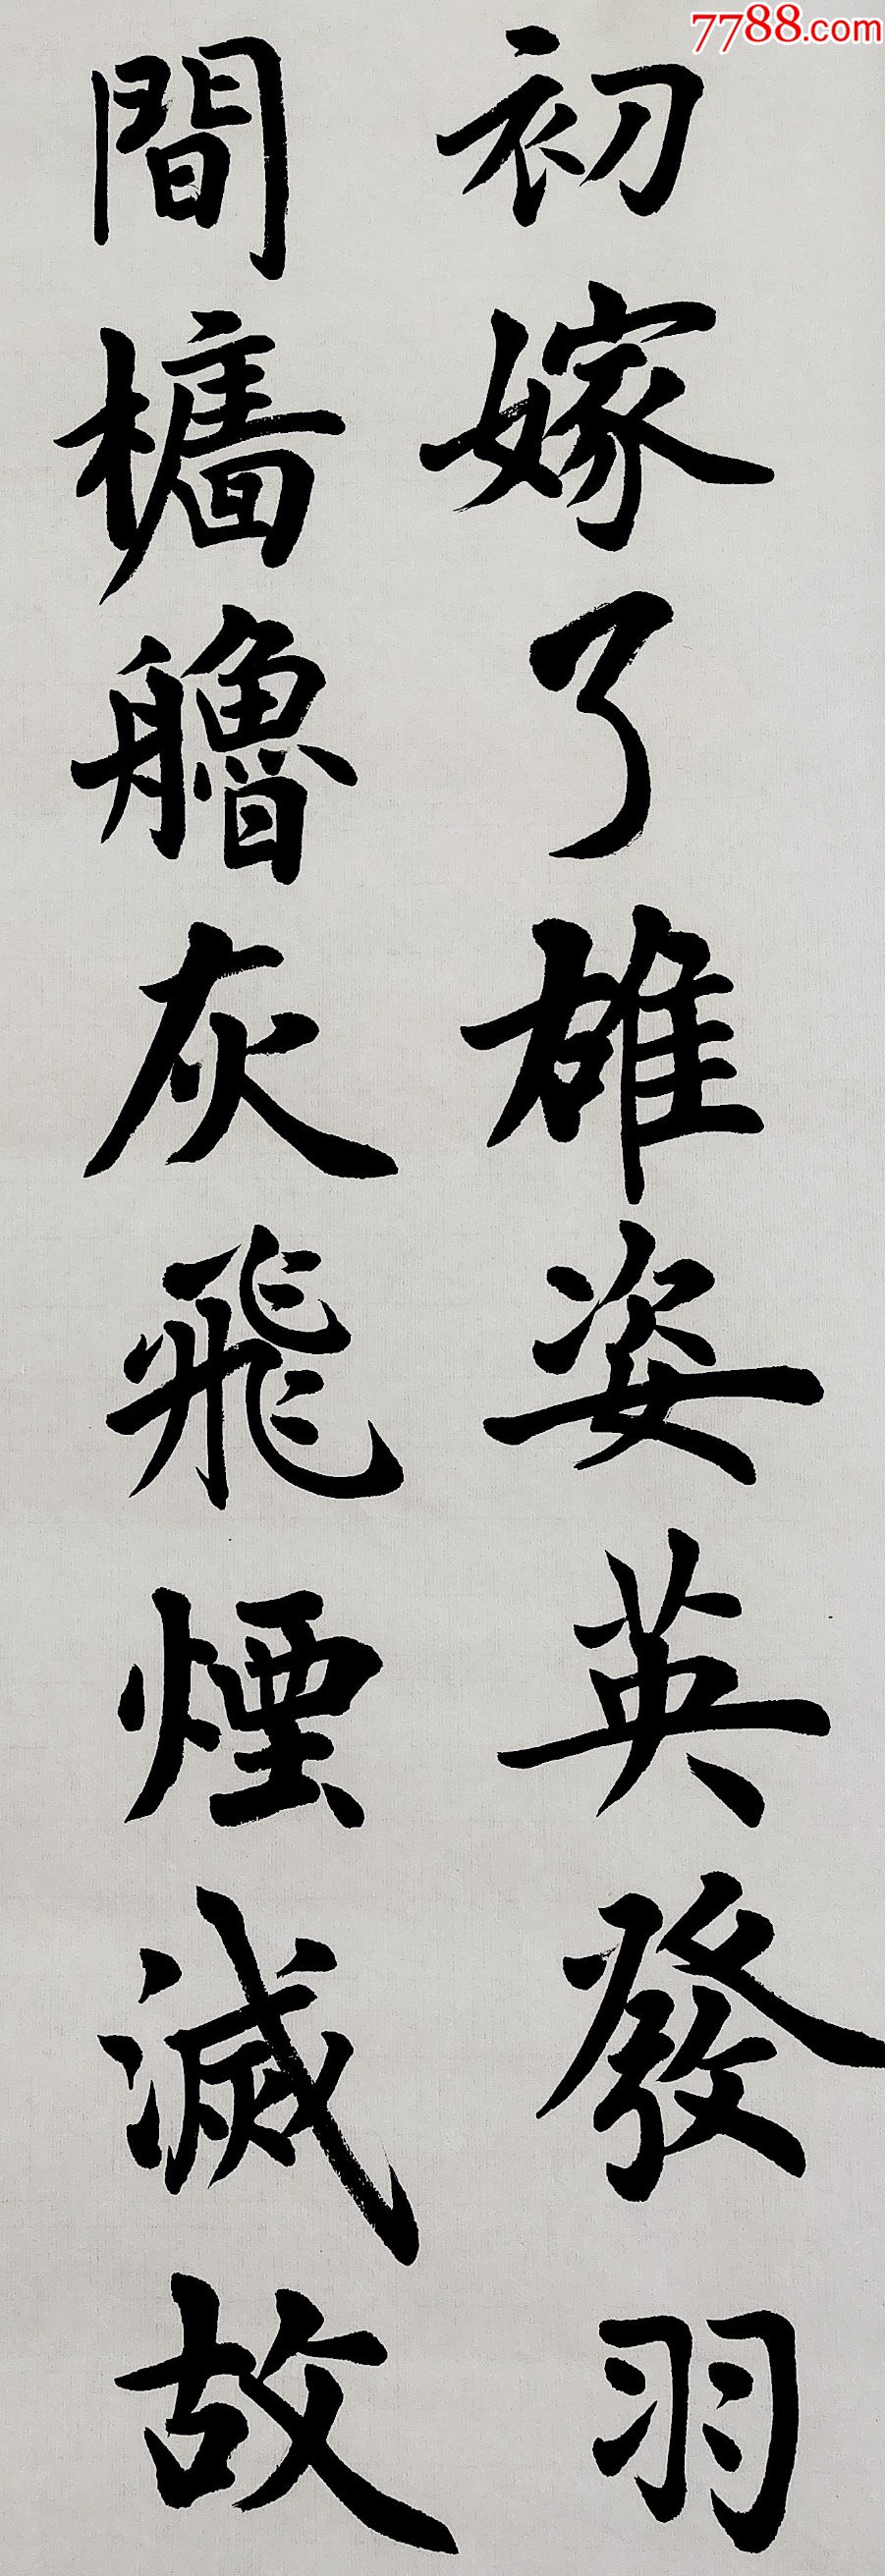 7788.com
初嫁了雄姿英發羽
間檣艪灰飛煙滅故